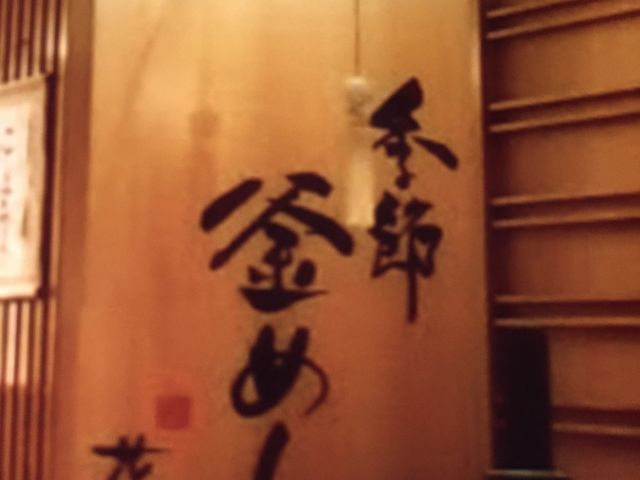 季節
釜めし
花